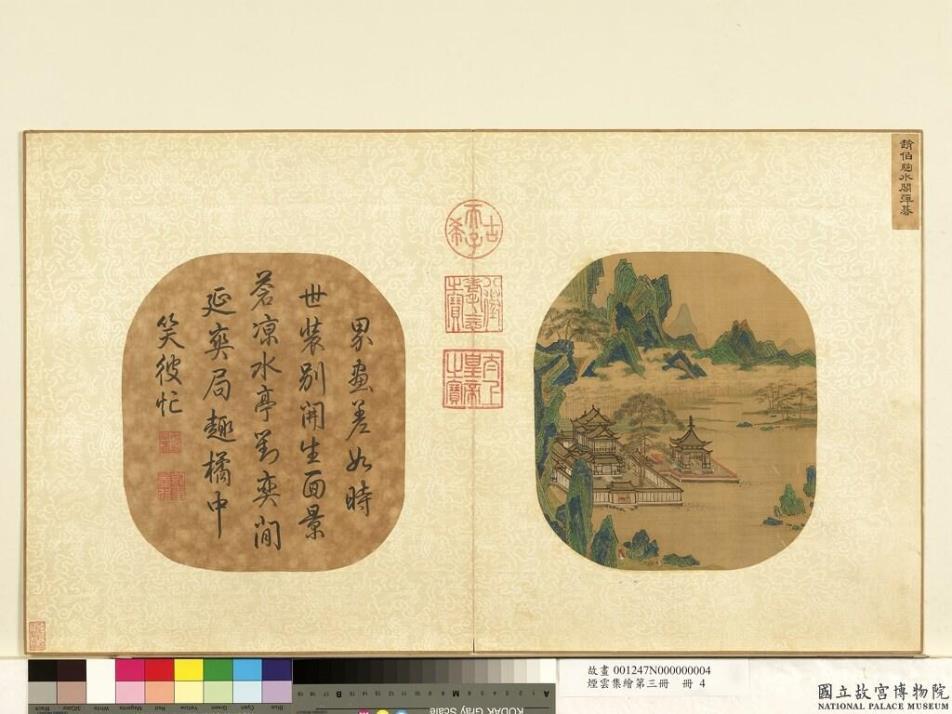 趙伯駒水閣彈棊
古希天子
八徵耄念之寶
太上皇帝之寶
界畫差如時
世裝別開生面景
蒼凉水亭對奕間
延爽局趣橘中
笑彼忙
故畫 001247N000000004
煙雲集繪第三冊 冊 4
國立故宮博物院
NATIONAL PALACE MUSEUM
KODAK Gray Scale